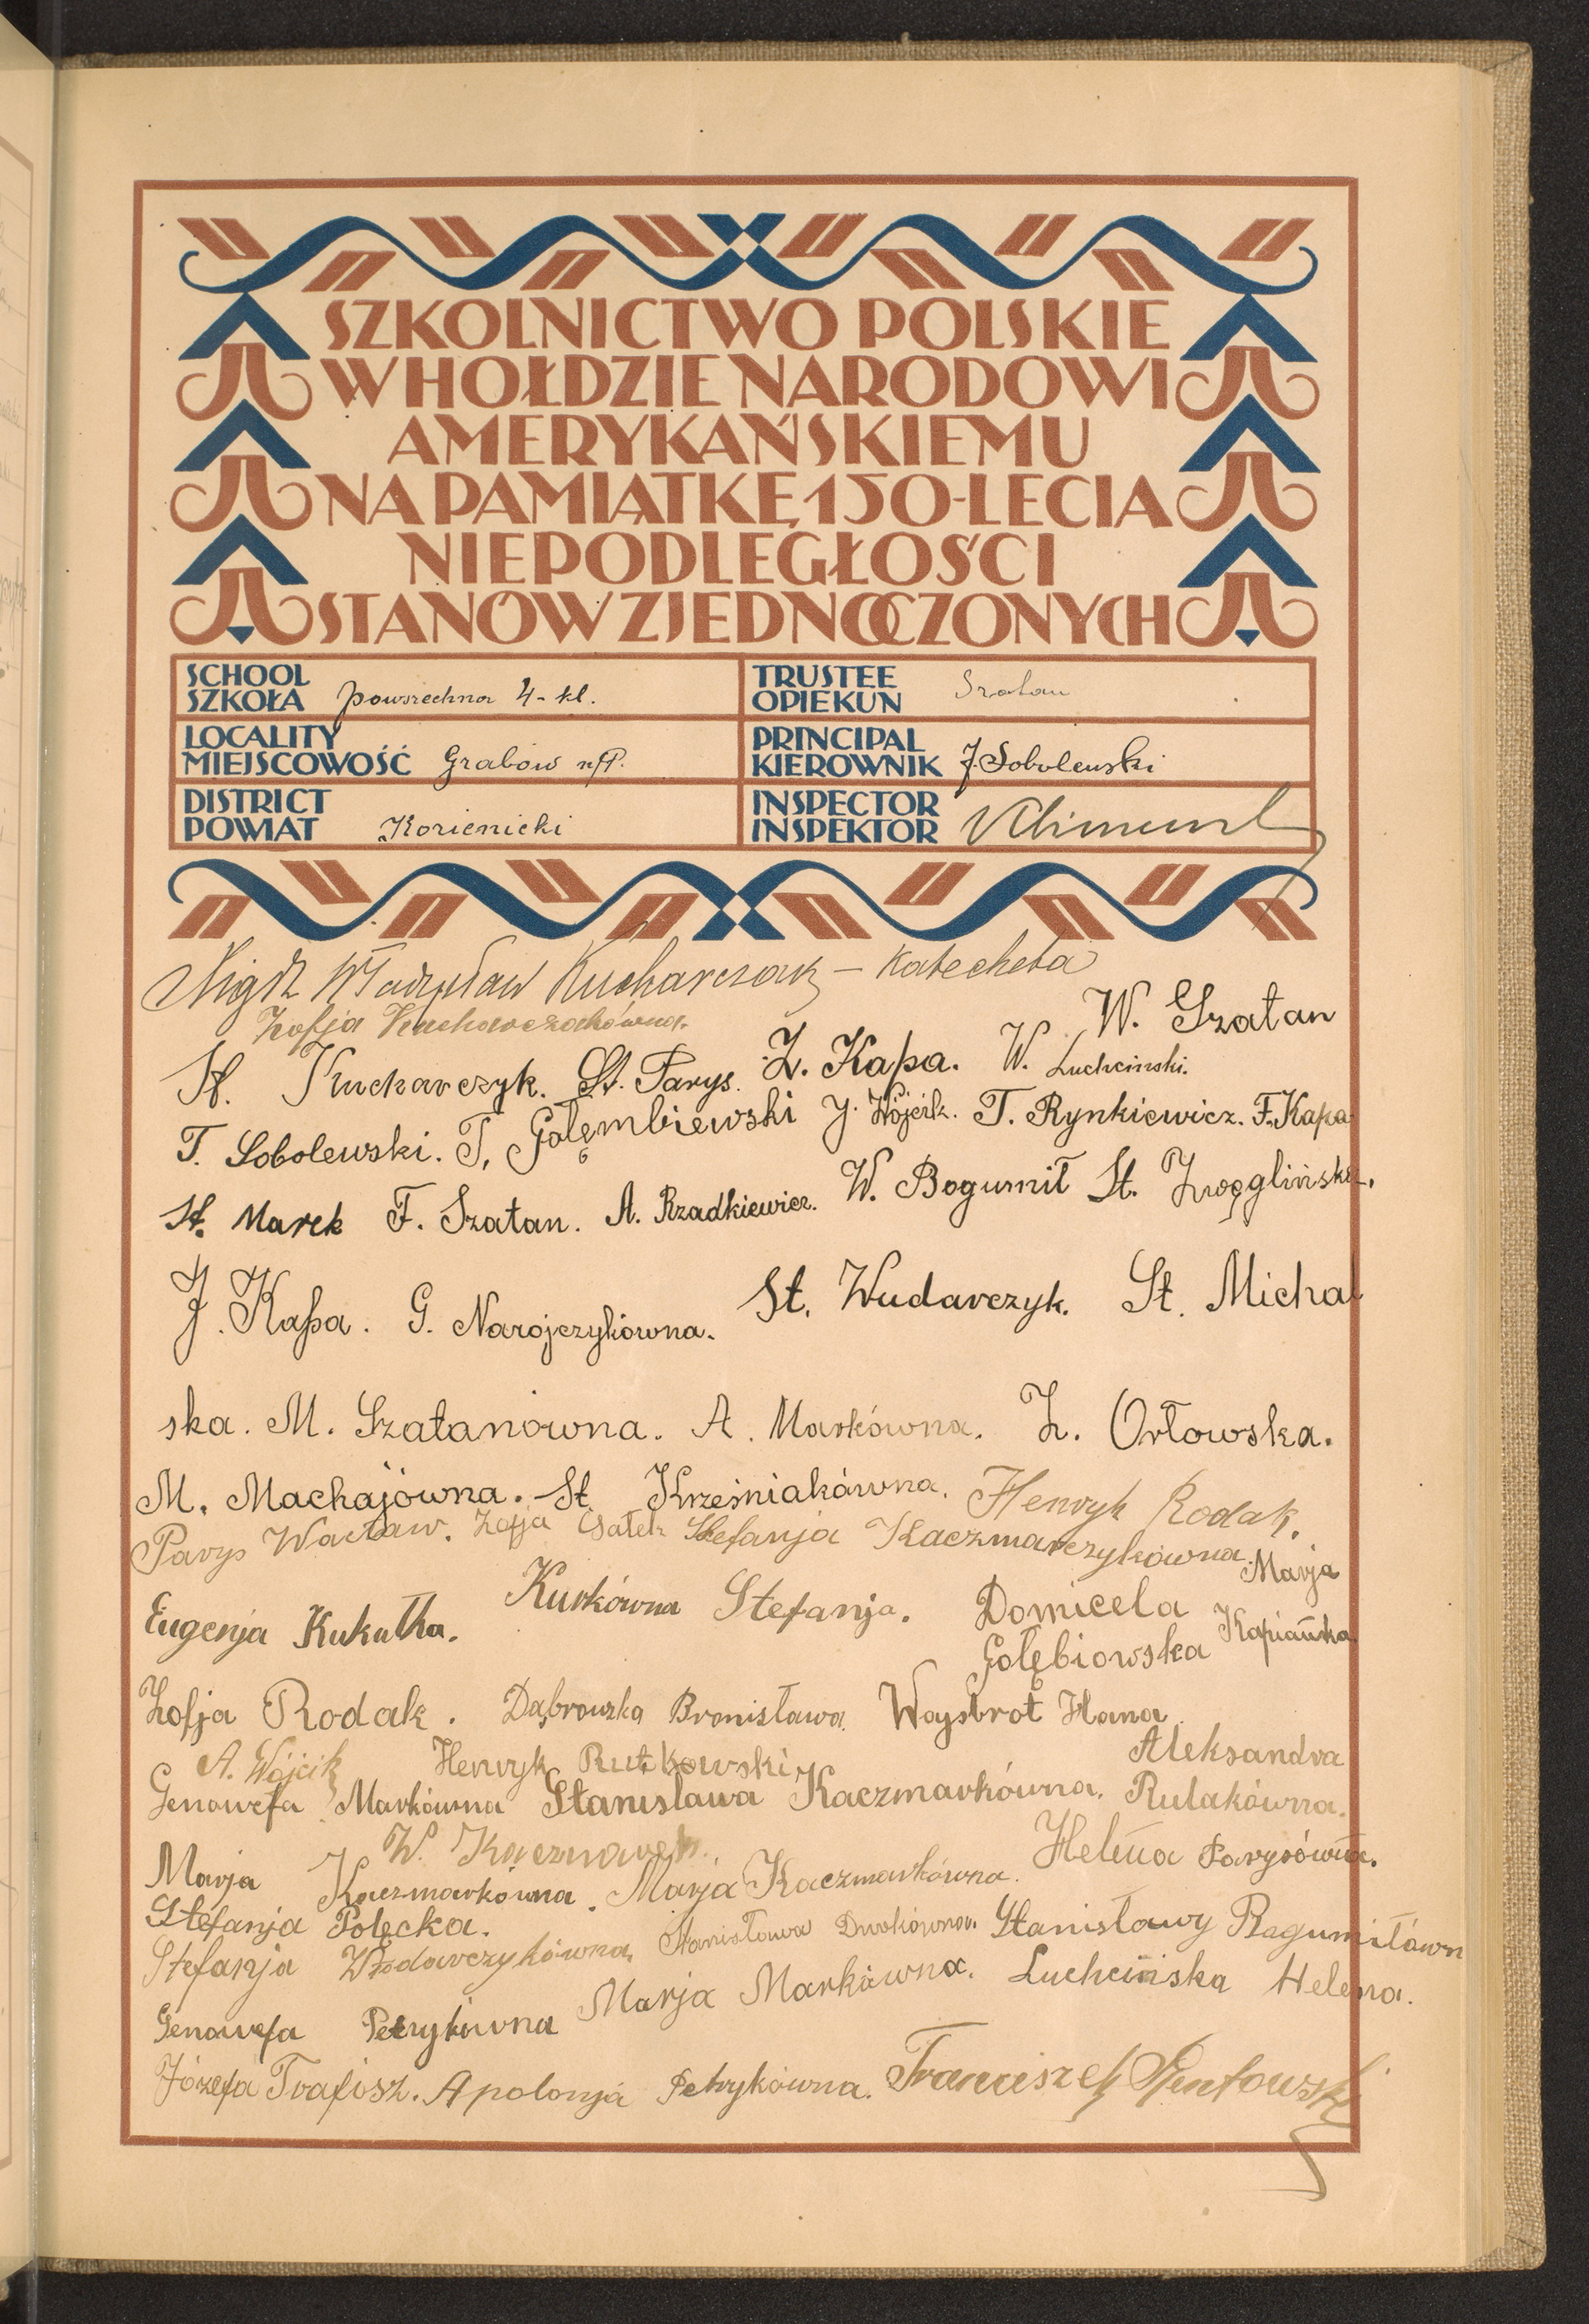 SZKOLNICTWO POLSKIE
W HOŁDZIE NARODOWI
AMERYKAŃSKIEMU
NA PAMIĄTKĘ 150-LECIA
NIEPODLEGŁOŚCI
STANÓW ZJEDNOCZONYCH
SCHOOL
SZKOŁA powszechna 4-kl.
TRUSTEE
OPIEKUN Szatan
LOCALITY
MIEJSCOWOŚĆ Grabów n/P.
PRINCIPAL
KIEROWNIK J. Sobolewski
DISTRICT
POWIAT Kozienicki
INSPECTOR
INSPEKTOR
Władysław Kucharczak – Katecheta
Zofja Kucharczakówna. W. Szatan
St. Kucharczyk. St. Parys. Z. Kapa. W. Luchcinski.
T. Sobolewski. T. Gołęmbiewski J. Wójcik. T. Rynkiewicz. F. Kapa
St. Marek F. Szatan. A. Rzadkiewicz. W. Bogumił St. Zwęglińska.
J. Kapa. G. Narojczykówna. St. Wudarczyk. St. Michal
ska. M. Szatanówna. A. Markówna. Z. Orłowska.
M. Machajówna. St. Krześniakówna. Henryk Rodak.
Parys Wacław. Zofja Osałek Stefanja Kaczmarczykówna. Marja
Eugenja Kukułka. Kurkówna Stefanja. Domicela
Gołębiowska Kapiańska
Zofja Rodak. Dąbrowska Bronisława Wajsbrot Hana
A. Wójcik Henryk Rutkowski Aleksandra
Genowefa Markówna Stanisława Kaczmarkówna. Rulakówna.
W. Kaczmarek. Helena Parysówna.
Marja Kaczmarkówna. Marja Kaczmarkówna.
Stefanja Połęcka.
Stefanja Włodarczykówna. Stanisława Dwokówna. Stanisławy Bogumiłówn
Genowefa Petrykówna Marja Markówna. Luchcińska Helena.
Józefa Trafisz. Apolonja Petrykówna. Franciszek